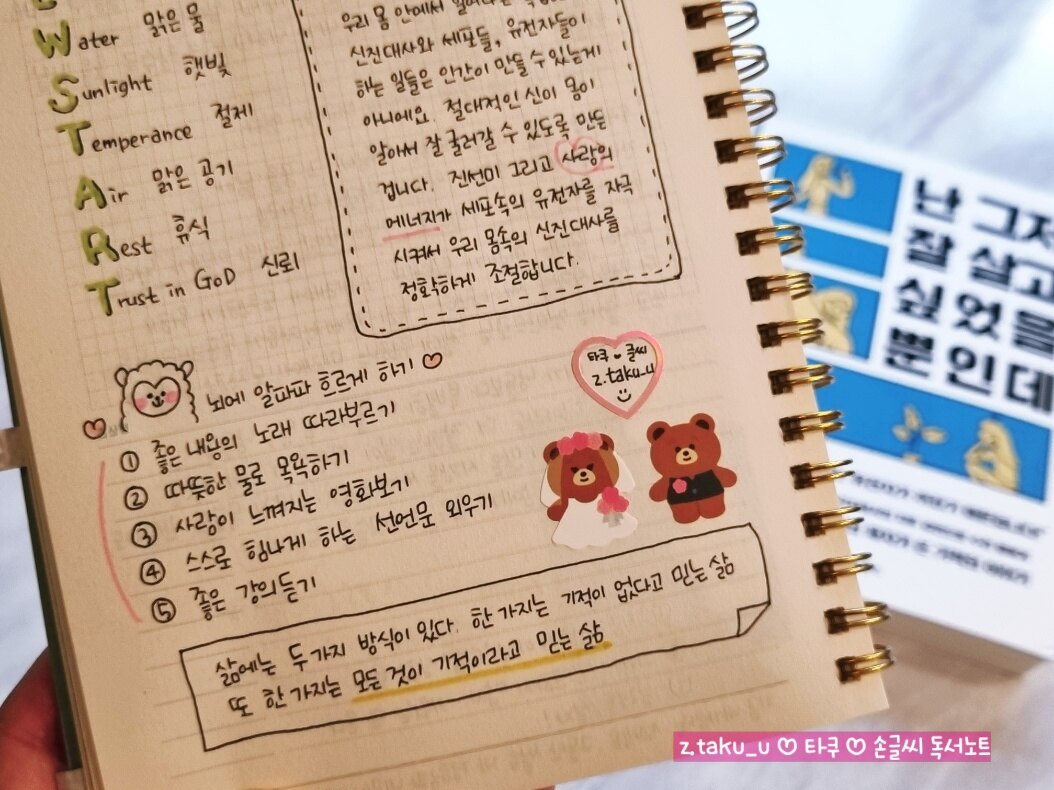 Water 맑은 물
Sunlight 햇빛
Temperance 절제
Air 맑은 공기
Rest 휴식
Trust in GoD 신뢰
우리 몸 안에서
신진대사와 세포들, 유전자들이
하는 일들은 인간이 만들 수 있는게
아니에요. 절대적인 신이 몸이
알아서 잘 굴러갈 수 있도록 만든
겁니다. 진선미 그리고 사랑의
에너지가 세포속의 유전자를 자극
시켜서 우리 몸속의 신진대사를
정확하게 조절합니다.
뇌에 알파파 흐르게 하기
① 좋은 내용의 노래 따라부르기
② 따뜻한 물로 목욕하기
③ 사랑이 느껴지는 영화보기
④ 스스로 힘나게 하는 선언문 외우기
⑤ 좋은 강의듣기
타쿠 글씨
z.taku_u
삶에는 두가지 방식이 있다. 한 가지는 기적이 없다고 믿는 삶
또 한 가지는 모든 것이 기적이라고 믿는 삶
난 그저
잘 살고
싶었을
뿐인데
z.taku_u ♡ 타쿠 ♡ 손글씨 독서노트